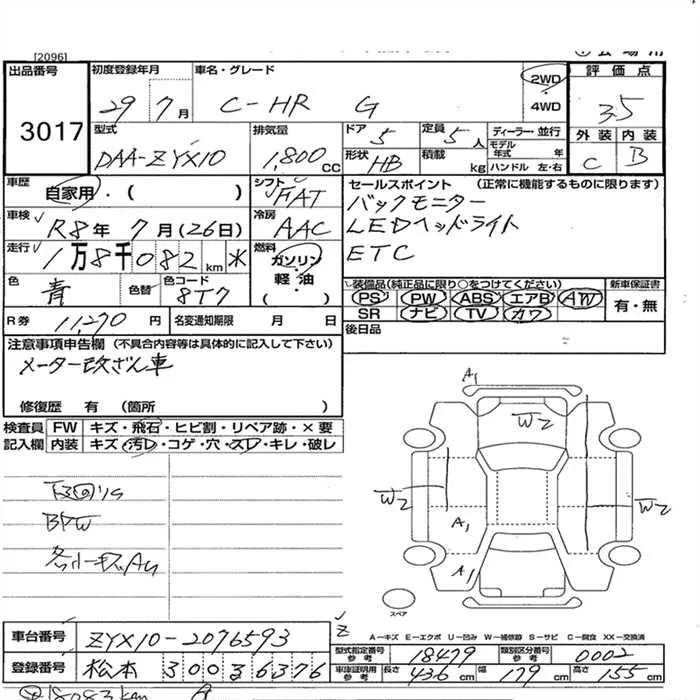 [2096]
出品番号 3017
初度登録年月 29 7 月
車名・グレード C-HR G
2WD
4WD
評価点 3.5
外装 内装
C B
型式 DAA-ZYX10
排気量 1,800 CC
ドア 5
定員 5 人
形状 HB
積載 kg
ディーラー・並行
モデル年式 年
ハンドル 左・右
車歴 自家用・( )
シフト FAT
車検 R8年 7月(26日)
冷房 AAC
走行 1万8千082 km ✳
燃料 ガソリン・軽油 ( )
色 青
色替
色コード 8T7
R券 11,270 円
名変通知期限 月 日
セールスポイント (正常に機能するものに限ります)
バックモニター
LEDヘッドライト
ETC
装備品(純正品に限り○をつけてください)
PS PW ABS エアB AW
SR ナビ TV カワ
新車保証書
有・無
後日品
注意事項申告欄 (不具合内容等は具体的に記入して下さい)
メーター改ざん車
修復歴 有 (箇所 )
検査員記入欄
FW キズ・飛石・ヒビ割・リペア跡・×要
内装 キズ・汚レ・コゲ・穴・スレ・キレ・破レ
BPW
A1
W2
W2
W2
A1
A1
スペア
A−キズ E−エクボ U−凹み W−補修跡 S−サビ C−腐食 XX−交換済
車台番号 ZYX10-2076593
登録番号 松本 300 3 6376
型式指定番号 参考 18479
類別区分番号 参考 0002
車庫証明用 参考 長さ 436 cm 幅 179 cm 高さ 155 cm
18083km